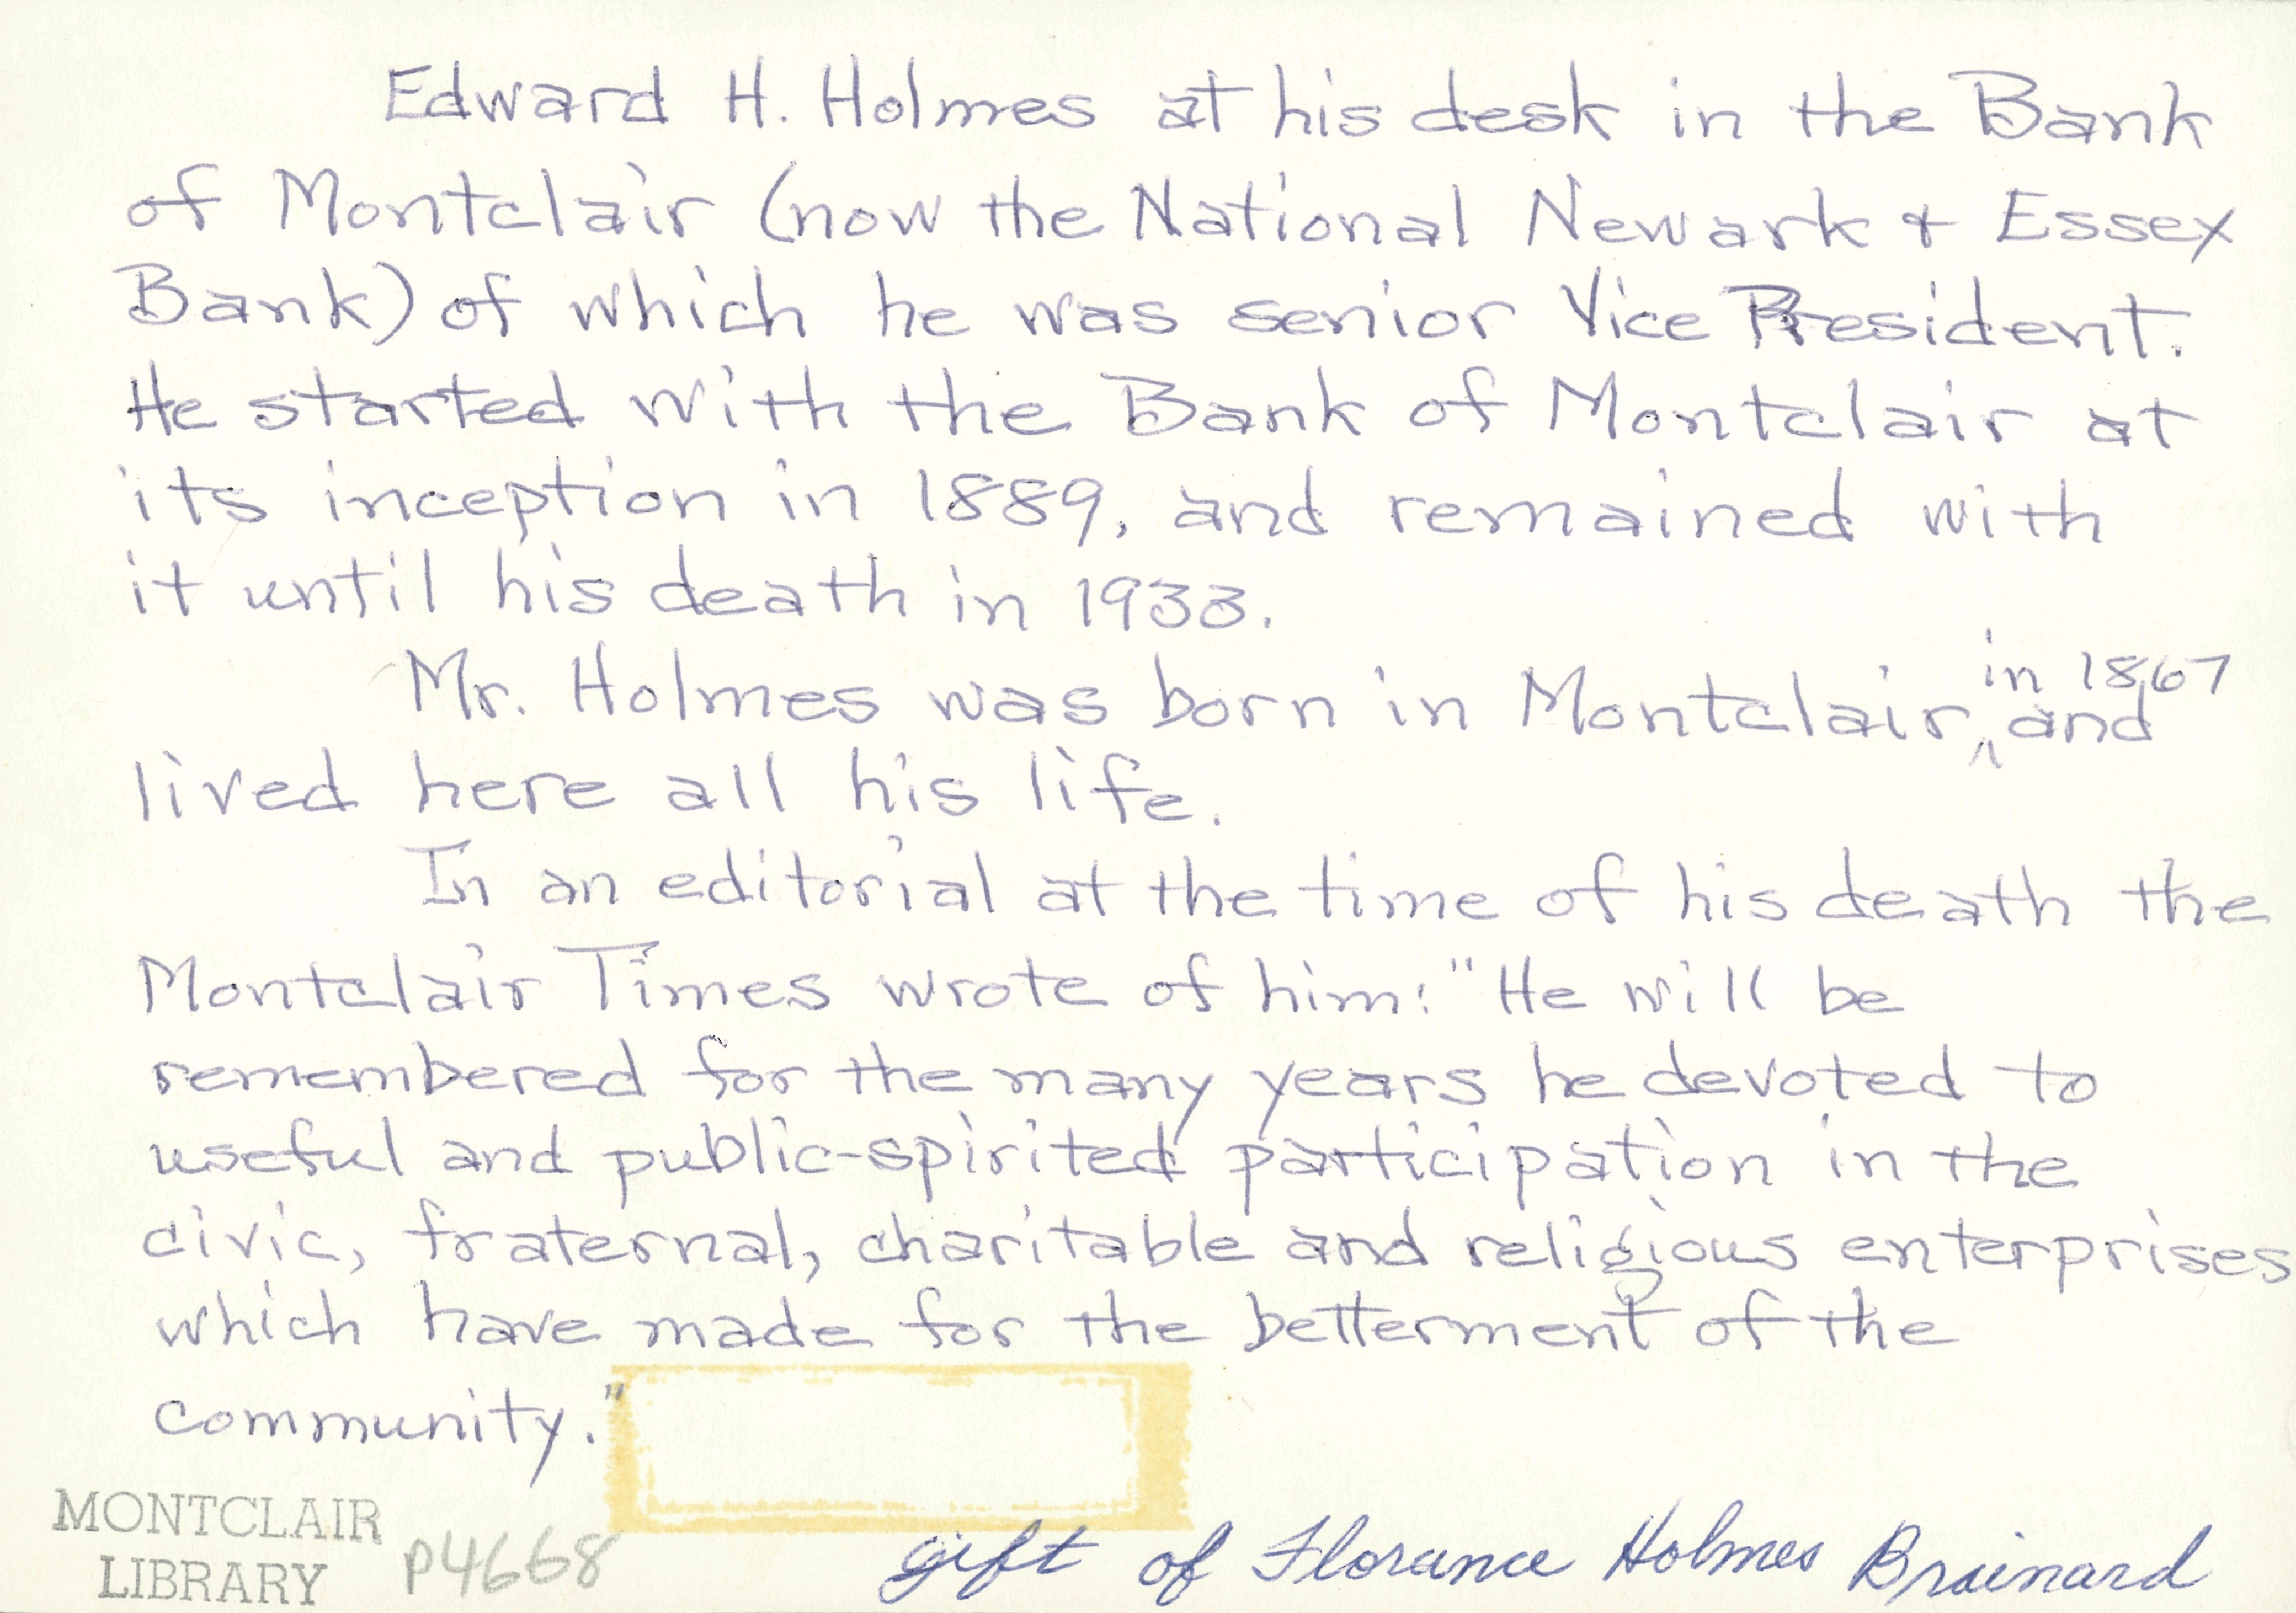 Edward H. Holmes at his desk in the Bank
of Montclair (now the National Newark & Essex
Bank) of which he was senior Vice President.
He started with the Bank of Montclair at
its inception in 1889, and remained with
it until his death in 1933.
Mr. Holmes was born in Montclair, in 1867 and
lived here all his life.
In an editorial at the time of his death the
Montclair Times wrote of him: "He will be
remembered for the many years he devoted to
useful and public-spirited participation in the
civic, fraternal, charitable and religious enterprises
which have made for the betterment of the
community."
MONTCLAIR
LIBRARY
P4668
gift of Florence Holmes Brainard